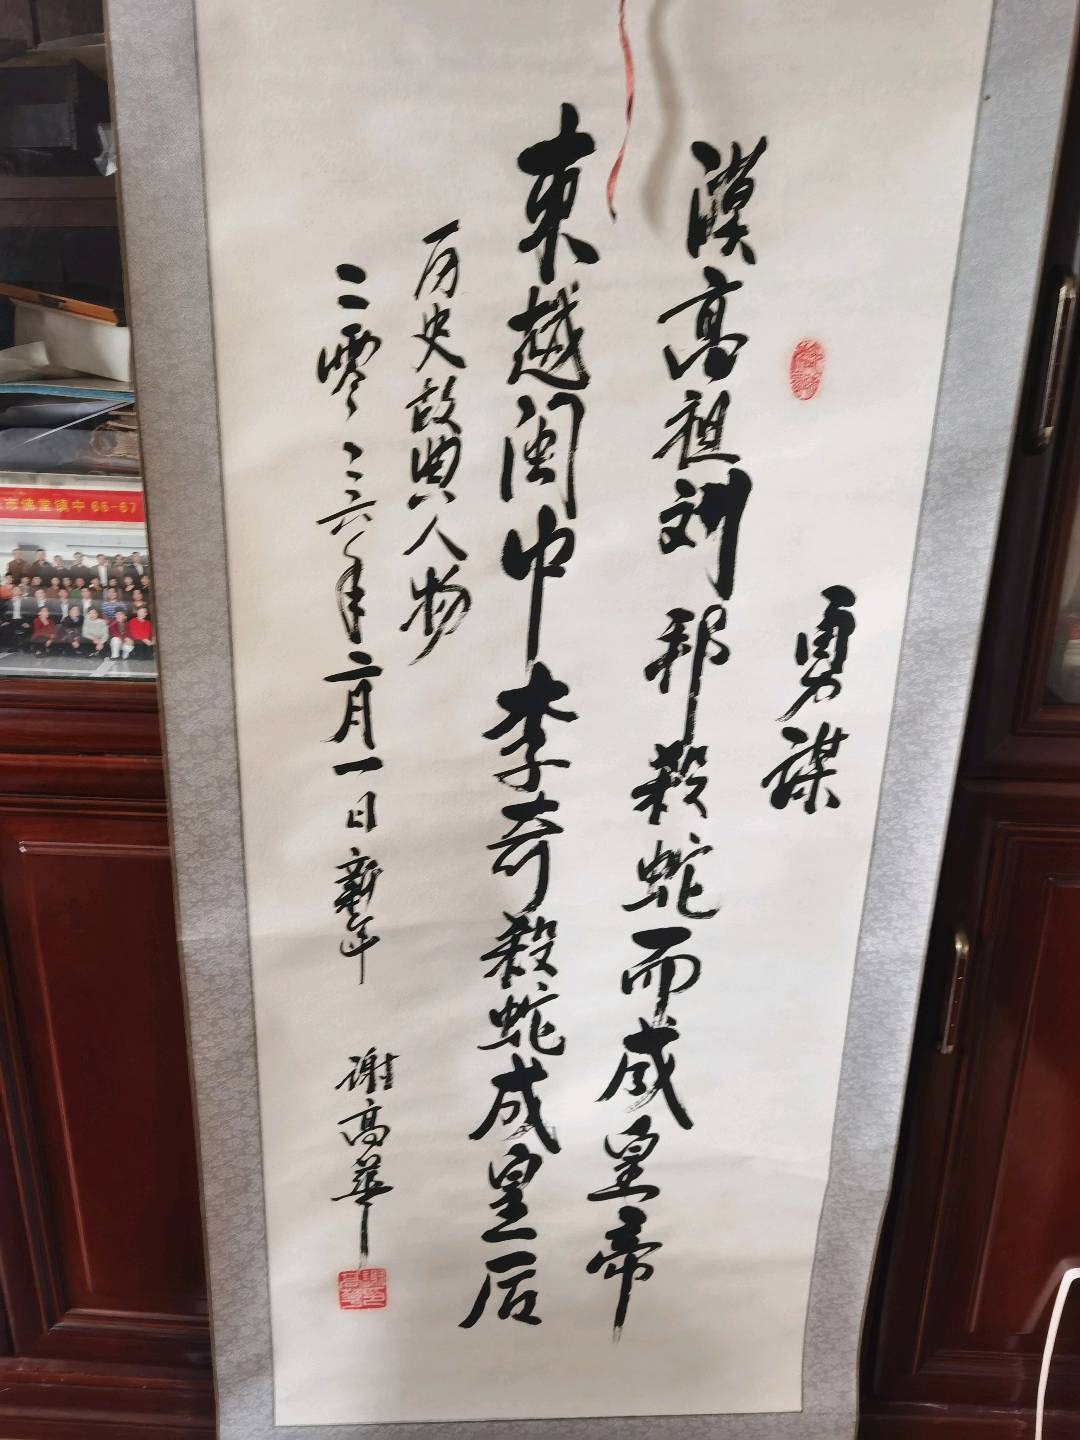 勇谋
漢高祖刘邦殺蛇而成皇帝
東越闽中李奇殺蛇成皇后
历史故典人物
二零二六年二月一日新年
谢高華
市佛堂镇中66-67